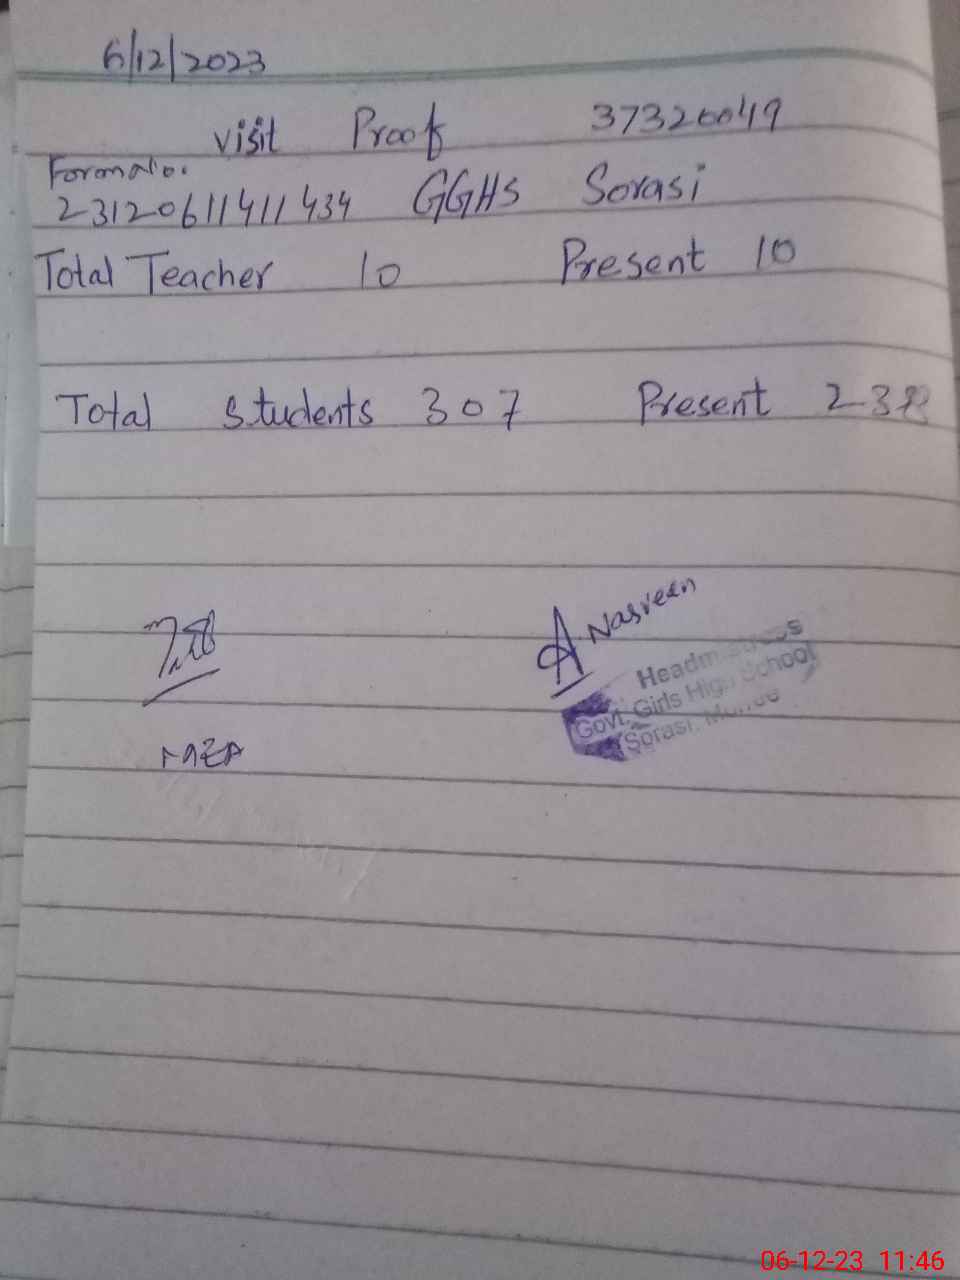 6/12/2023
visit Proof 37320049
Formno.
23120611411434 GGHS Sorasi
Total Teacher 10 Present 10
Total Students 307 Present
A Nasreen
Headmistress
Govt. Girls High School
Sorasi, Murree
06-12-23 11:46